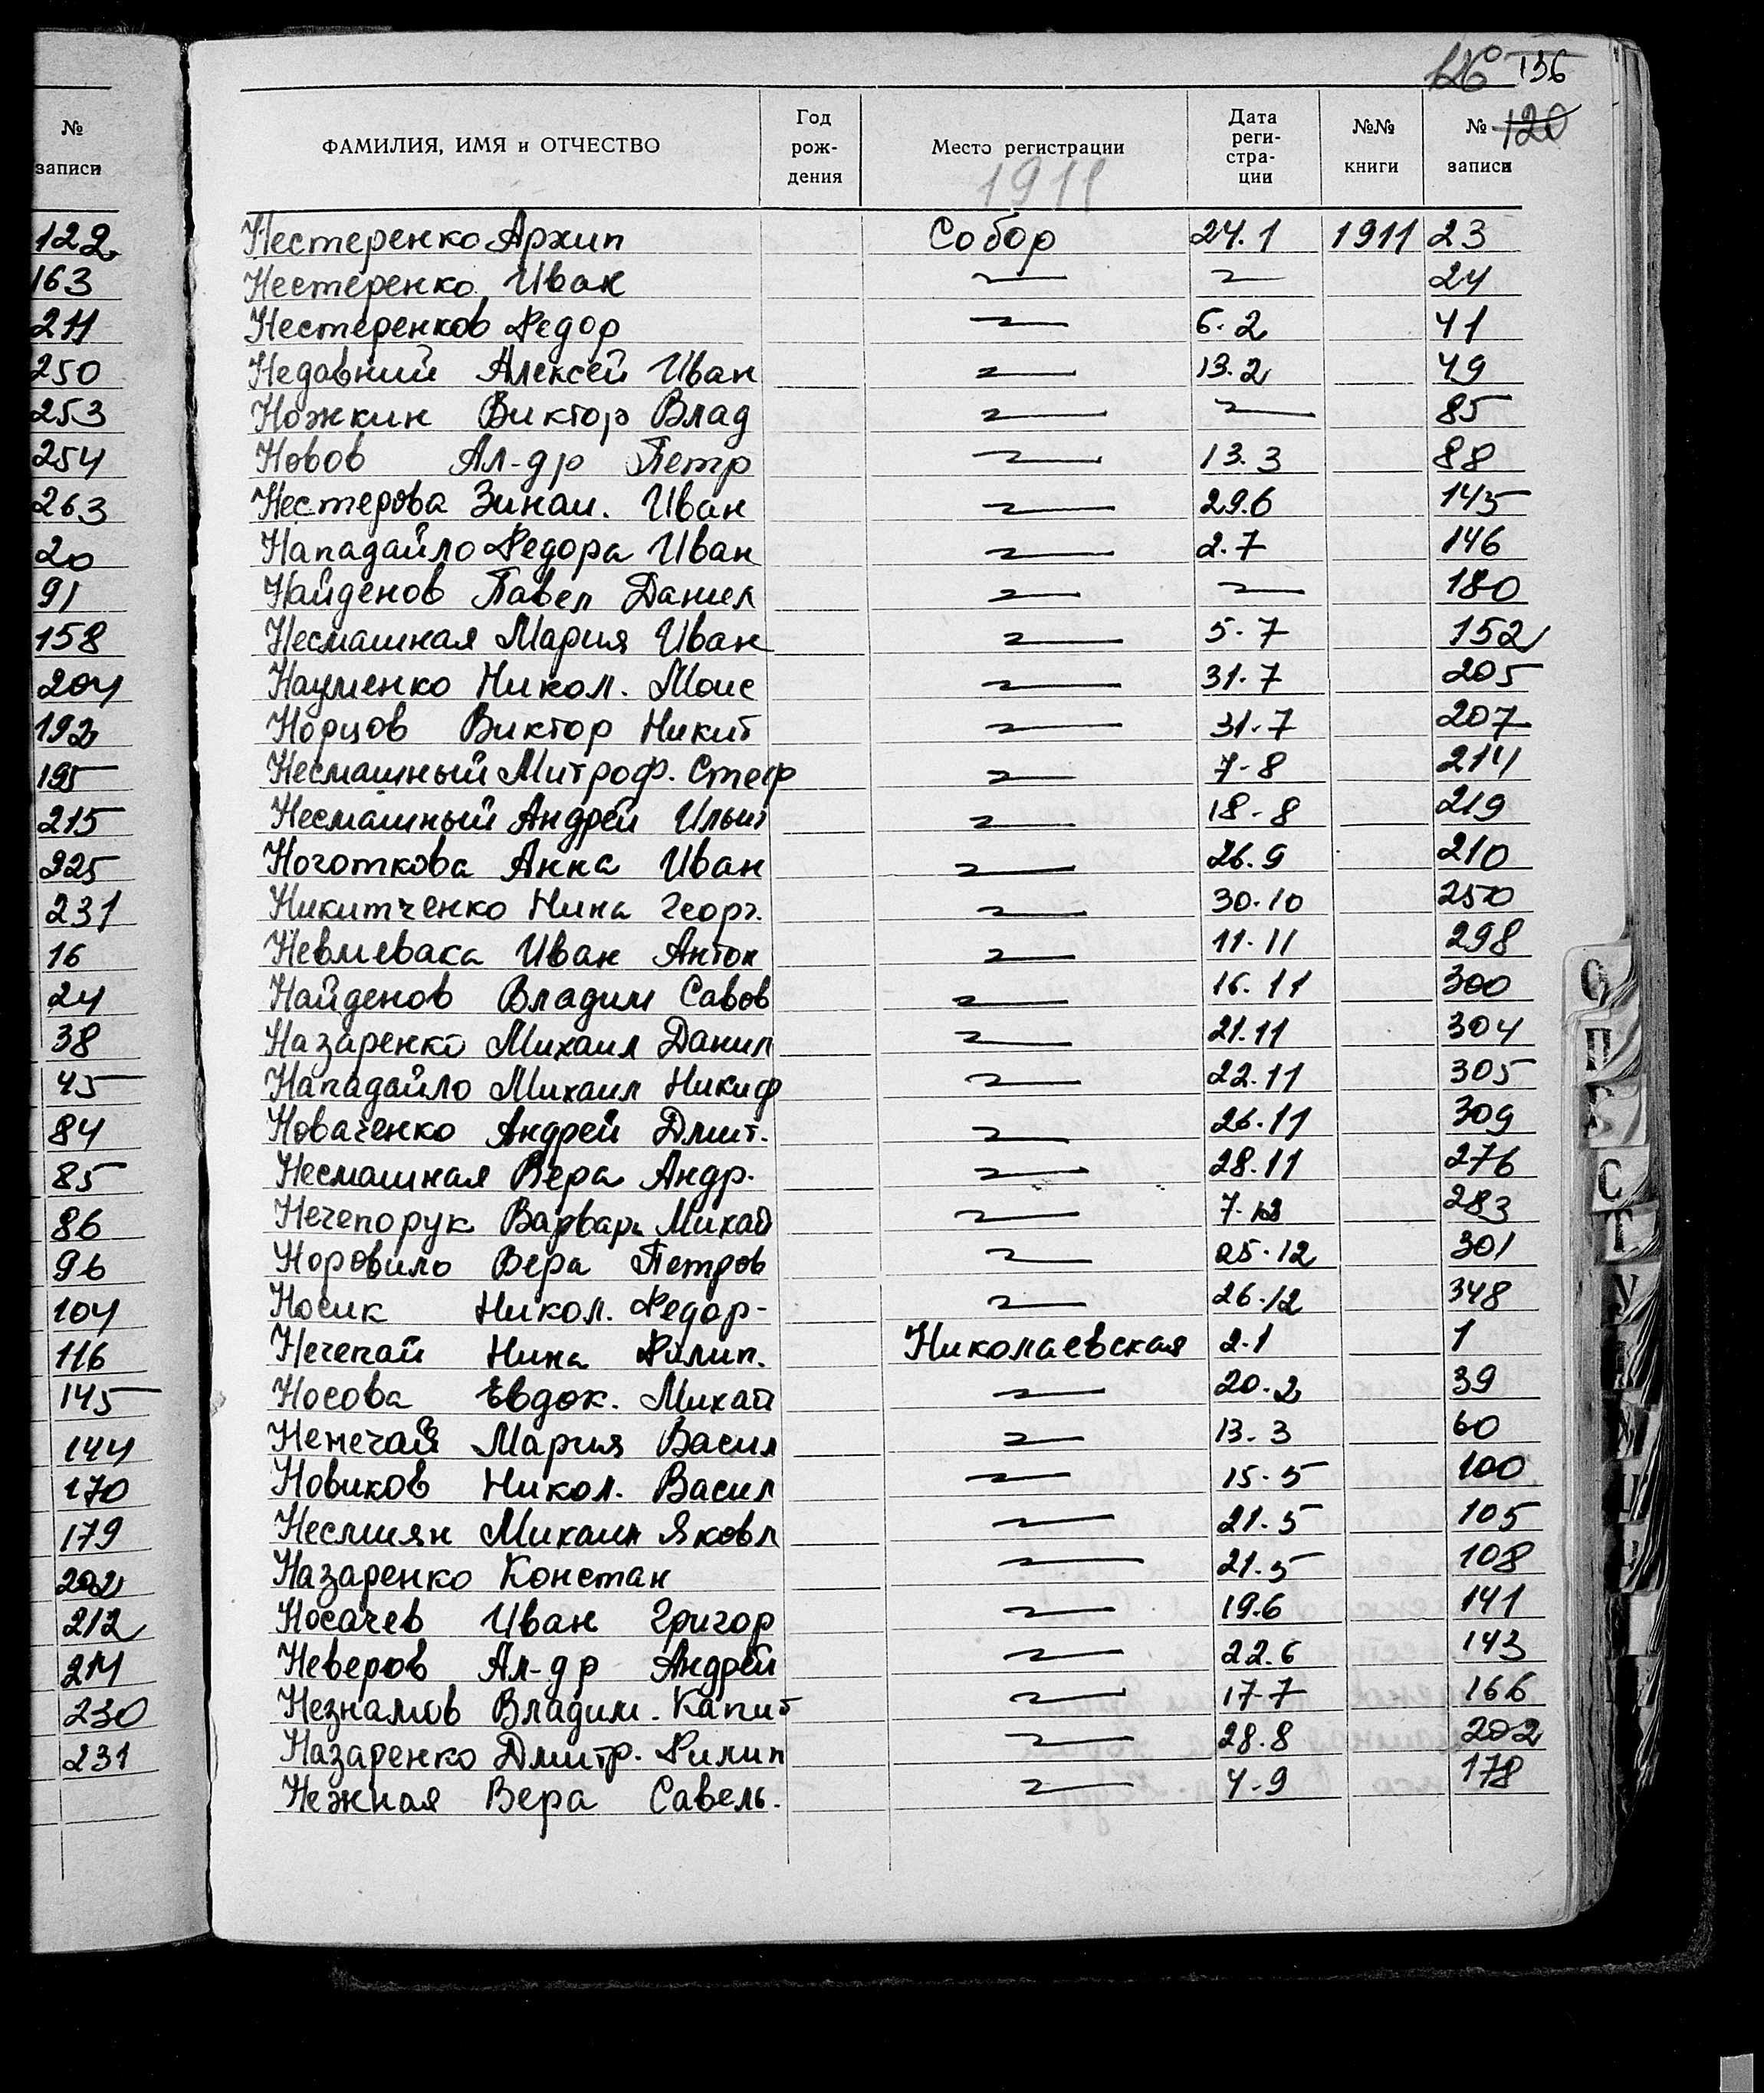 №
записи
122
163
211
250
253
254
263
20
91
158
204
192
195
215
225
231
16
24
38
45
84
85
86
96
104
116
145
144
170
179
202
212
214
230
231
136
120
ФАМИЛИЯ, ИМЯ и ОТЧЕСТВО Год рож-дения Место регистрации Дата реги-стра-ции №№ книги № записи
1911
Нестеренко Архип Собор 24.1 1911 23
Нестеренко Иван 24
Нестеренков Федор 6.2 41
Недавний Алексей Иван 13.2 49
Ножкин Виктор Влад 85
Новов Ал-др Петр 13.3 88
Нестерова Зинаи. Иван 29.6 145
Нападайло Федора Иван 2.7 146
Найденов Павел Данил 180
Несмашная Мария Иван 5.7 152
Науменко Никол. Моис 31.7 205
Норцов Виктор Никит 31.7 207
Несмашный Митроф. Стеф 7-8 214
Несмашный Андрей Ильи 18-8 219
Ноготкова Анна Иван 26.9 210
Никитченко Нина Георг. 30.10 250
Невмевака Иван Антон 11.11 298
Найденов Владим Савов 16.11 300
Назаренко Михаил Данил 21.11 304
Нападайло Михаил Никиф 22.11 305
Новаченко Андрей Дмит. 26.11 309
Несмашная Вера Андр. 28.11 276
Нечепорук Варвара Михай 7-12 283
Норовило Вера Петров 25.12 301
Носик Никол. Федор- 26.12 348
Нечепай Нина Филип. Николаевская 2.1 1
Носова Евдок. Михай 20.2 39
Ненечай Мария Васил 13.3 60
Новиков Никол. Васил 15.5 100
Несмиян Михаил Яковл 21.5 105
Назаренко Констан 21.5 108
Носачев Иван Григор 19.6 141
Неверов Ал-др Андрей 22.6 143
Незнамов Владим. Капит 17-7 166
Назаренко Дмитр. Филип 28.8 202
Нежная Вера Савель. 4-9 178
О
П
С
Т
У